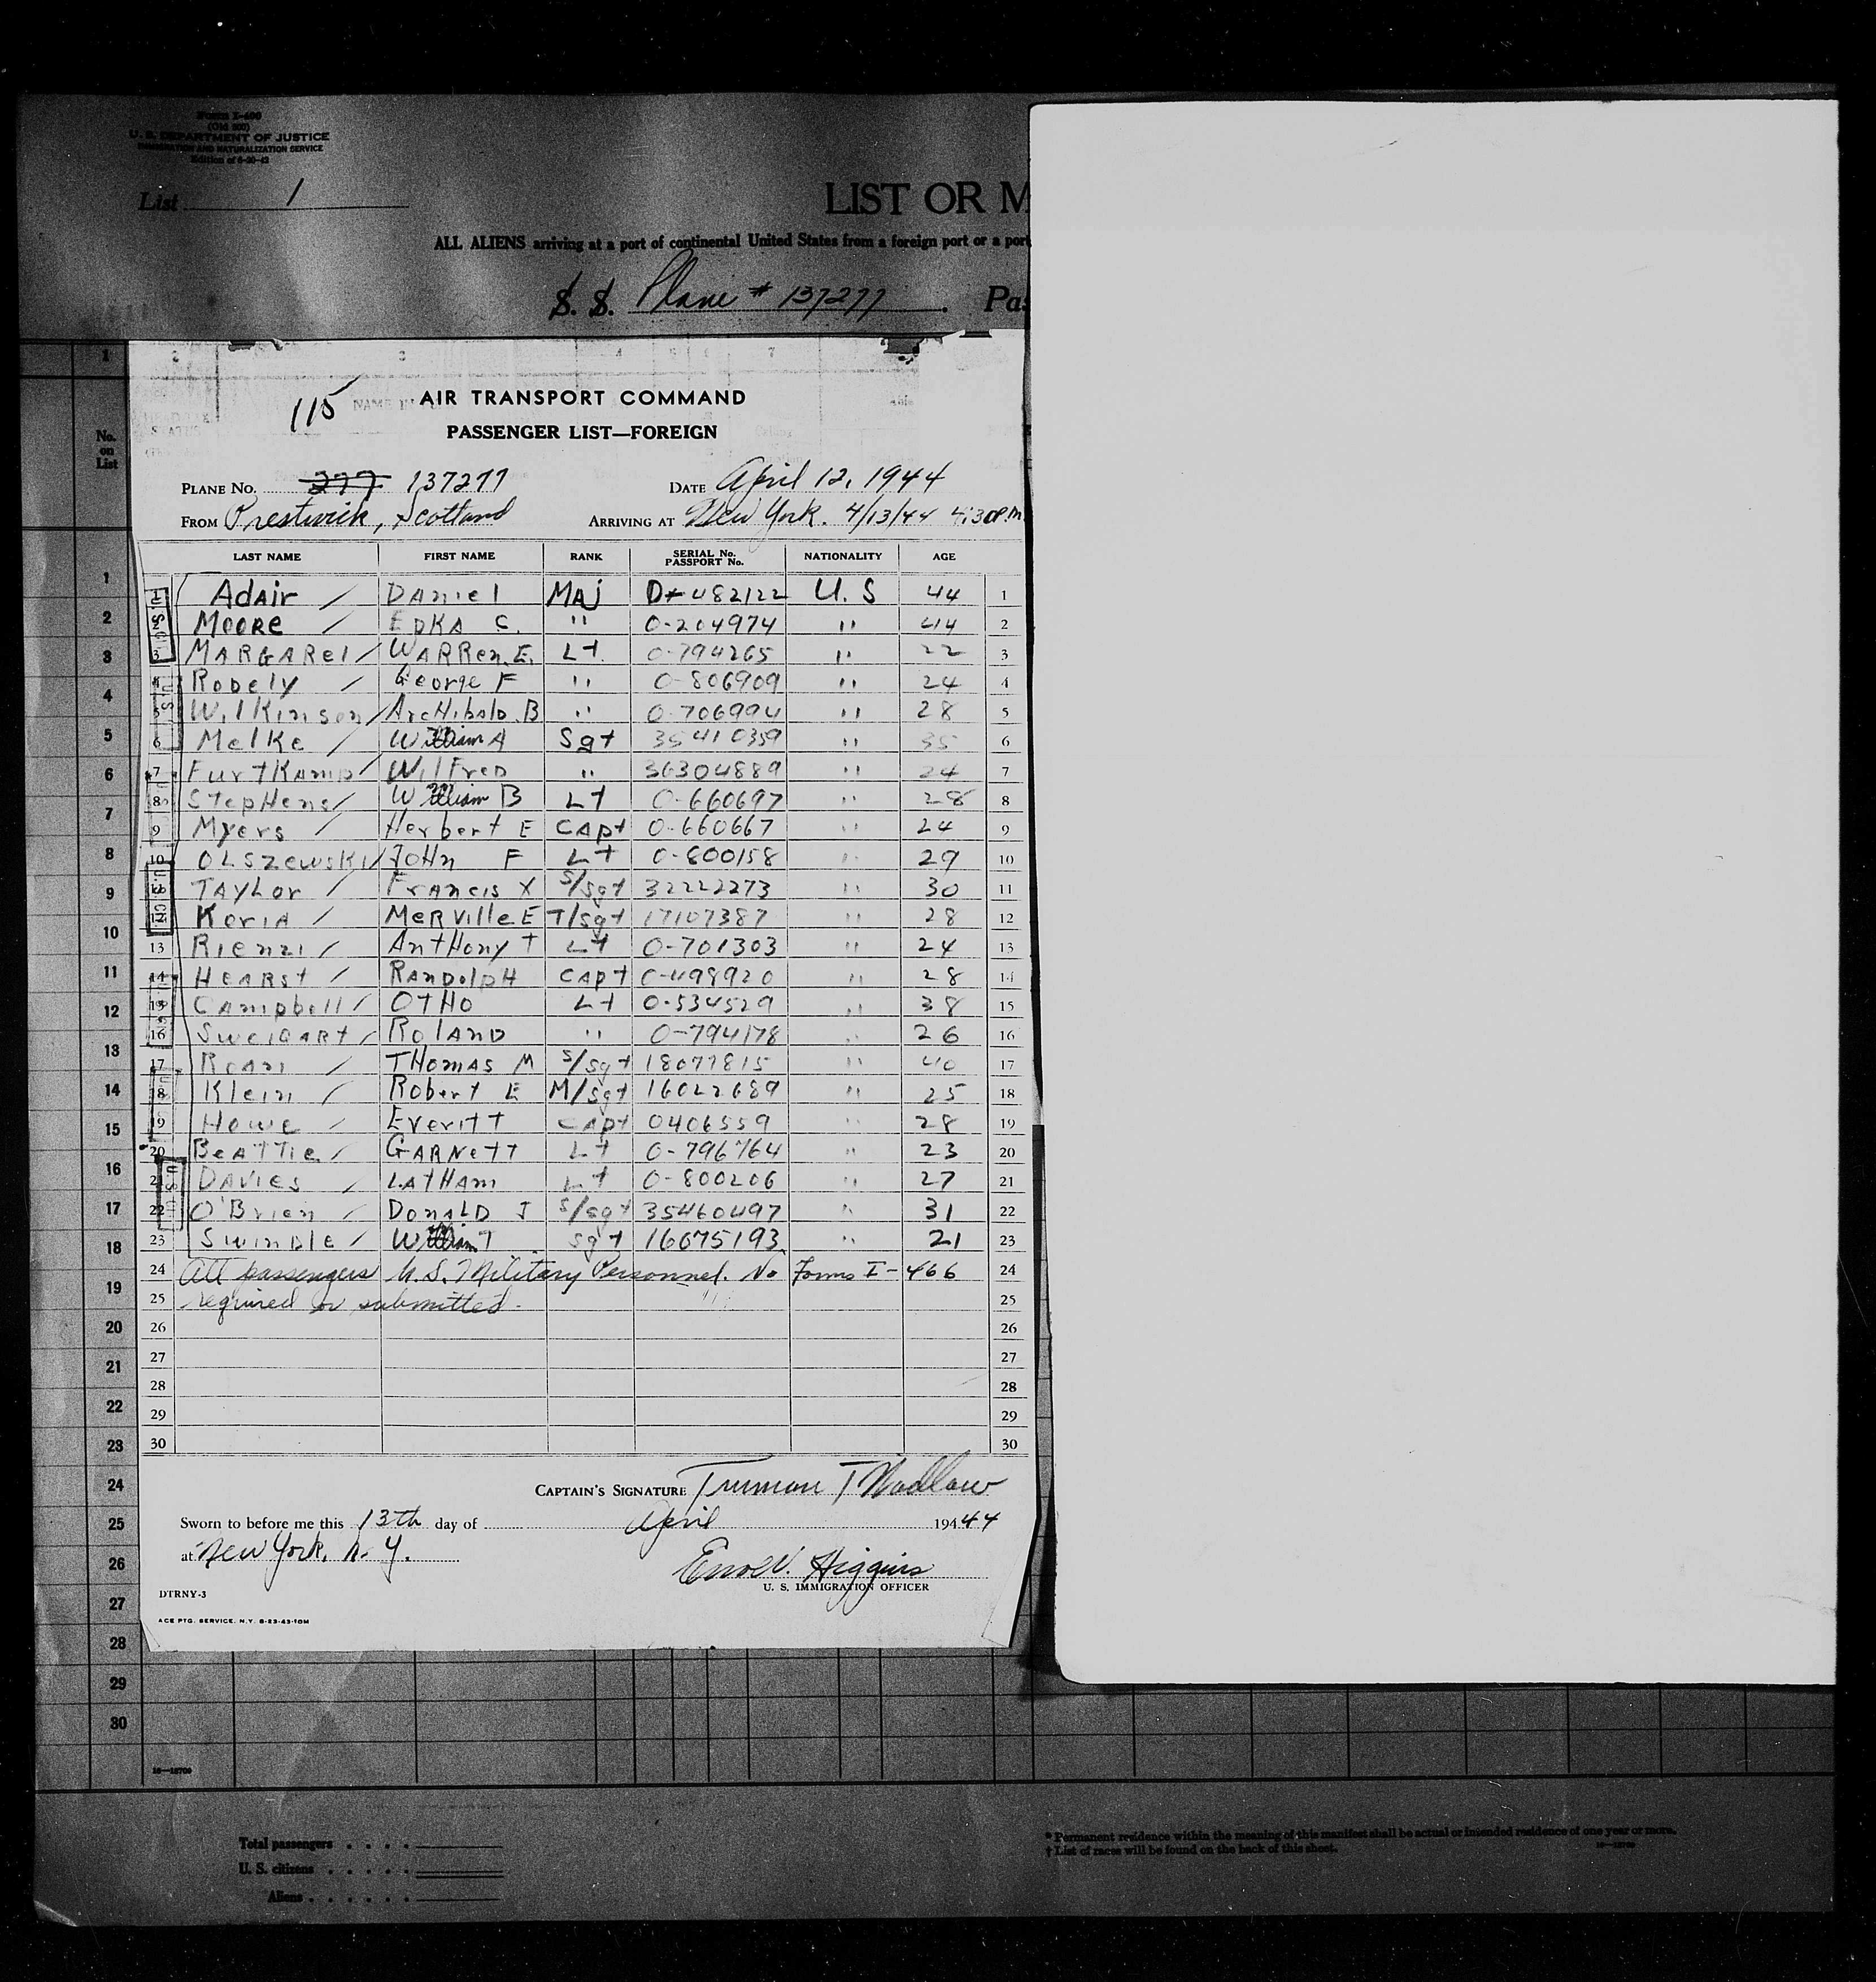 Form I-400
(Old 500)
U. S. DEPARTMENT OF JUSTICE
IMMIGRATION AND NATURALIZATION SERVICE
Edition of 6-30-43
List 1
LIST OR M
ALL ALIENS arriving at a port of continental United States from a foreign port or a port
S. S. Plane # 137277. Pas
115 AIR TRANSPORT COMMAND
PASSENGER LIST—FOREIGN
PLANE No. 277 137277 DATE April 12, 1944
FROM Prestwick, Scotland ARRIVING AT New York. 4/13/44 4:30P.M.
LAST NAME FIRST NAME RANK SERIAL No. PASSPORT No. NATIONALITY AGE
1 Adair / Daniel Maj 482122 U.S 44 1
2 Moore / C. " 0-204974 " 44 2
3 MARGAREl / WARRen E. Lt 0-794265 " 22 3
4 Robely / George F " 0-806909 " 24 4
5 Wilkinson / Archibald B " 0-706994 " 28 5
6 Melke / William A Sgt 35410359 " 35 6
7 Furtkamp / Wilfred " 36304889 " 24 7
8 Stephens / William B Lt 0-660697 " 28 8
9 Myers / Herbert E Capt 0-660667 " 24 9
10 Olszewski / John F Lt 0-800158 " 29 10
11 Taylor / Francis X S/Sgt 32222273 " 30 11
12 Koria / Merville E T/Sgt 17107387 " 28 12
13 Rienzi / Anthony T Lt 0-701303 " 24 13
14 Hearst / Randolph Capt 0-498920 " 28 14
15 Campbell / Otho Lt 0-534529 " 38 15
16 Sweigart / Roland " 0-794178 " 26 16
17 Roan / Thomas M S/Sgt 18077815 " 40 17
18 Klein / Robert E M/Sgt 16022689 " 25 18
19 Howe / Everitt Capt 0406559 " 28 19
20 Beattie / Garnett Lt 0-796764 " 23 20
21 Davies / Latham Lt 0-800206 " 27 21
22 O'Brien / Donald J S/Sgt 35460497 " 31 22
23 Swindle / William T Sgt 16075193 " 21 23
24 All passengers U.S. Military Personnel. No Forms I-466 24
25 required or submitted. 25
26 26
27 27
28 28
29 29
30 30
CAPTAIN'S SIGNATURE Truman T
Sworn to before me this 13th day of April 19444
at New York, N.Y.
Higgins
U. S. IMMIGRATION OFFICER
DTRNY-3
ACE PTG. SERVICE, N.Y. 6-23-43-10M
No. on List
1
2
3
4
5
6
7
8
9
10
11
12
13
14
15
16
17
18
19
20
21
22
23
24
25
26
27
28
29
30
Total passengers . . . .
U. S. citizens . . . . .
Aliens . . . . . .
* Permanent residence within the meaning of this manifest shall be actual or intended residence of one year or more.
† List of races will be found on the back of this sheet.